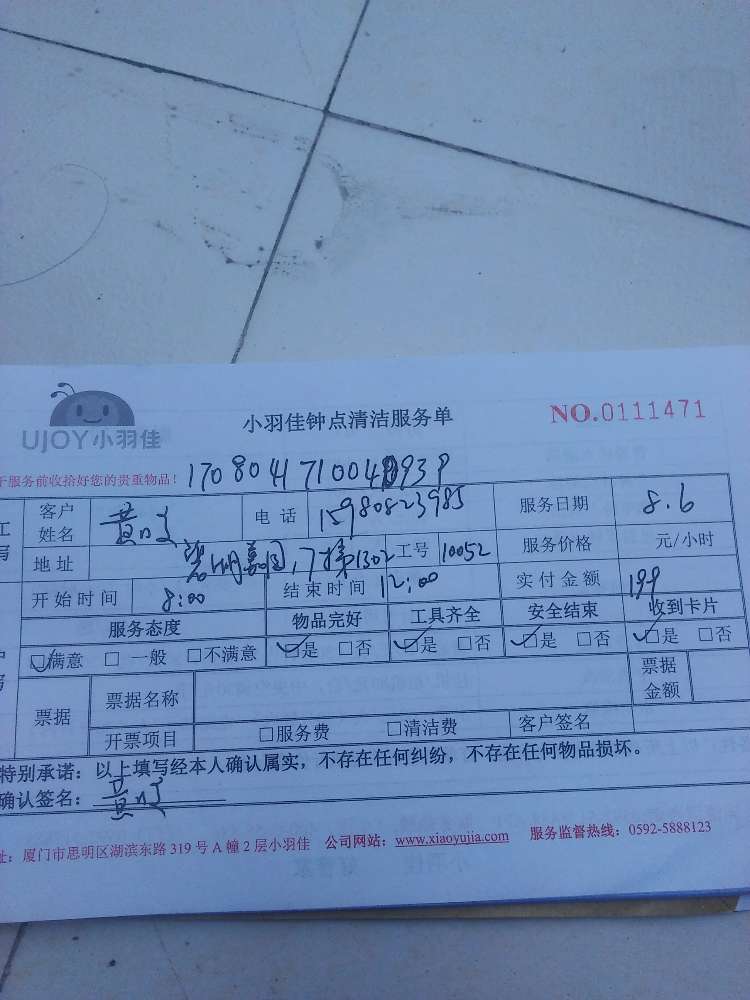 UJOY小羽佳
小羽佳钟点清洁服务单
NO.0111471
于服务前收拾好您的贵重物品！
客户姓名 黄 电话 15980823985 服务日期 8.6
地址 7 1302 工号 10052 服务价格 元/小时
开始时间 8:00 结束时间 12:00 实付金额 199
服务态度 物品完好 工具齐全 安全结束 收到卡片
☑满意 □一般 □不满意 ☑是 □否 ☑是 □否 ☑是 □否 ☑是 □否
票据 票据名称 票据金额
开票项目 □服务费 □清洁费 客户签名
特别承诺：以上填写经本人确认属实，不存在任何纠纷，不存在任何物品损坏。
确认签名：黄
址：厦门市思明区湖滨东路 319 号 A 幢 2 层小羽佳 公司网站：www.xiaoyujia.com 服务监督热线：0592-5888123